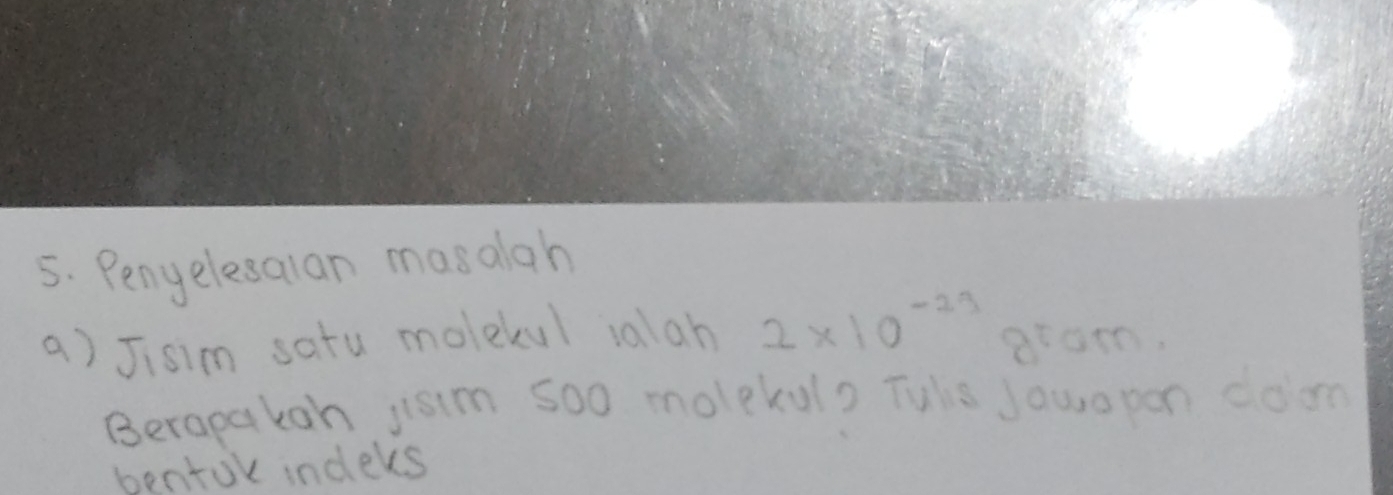 5. Penyelesaian masalah
a) Jisim satu molekul ialah 2 × 10⁻²³ gram.
Berapakah jisim 500 molekul? Tulis jawapan dalam
bentuk indeks